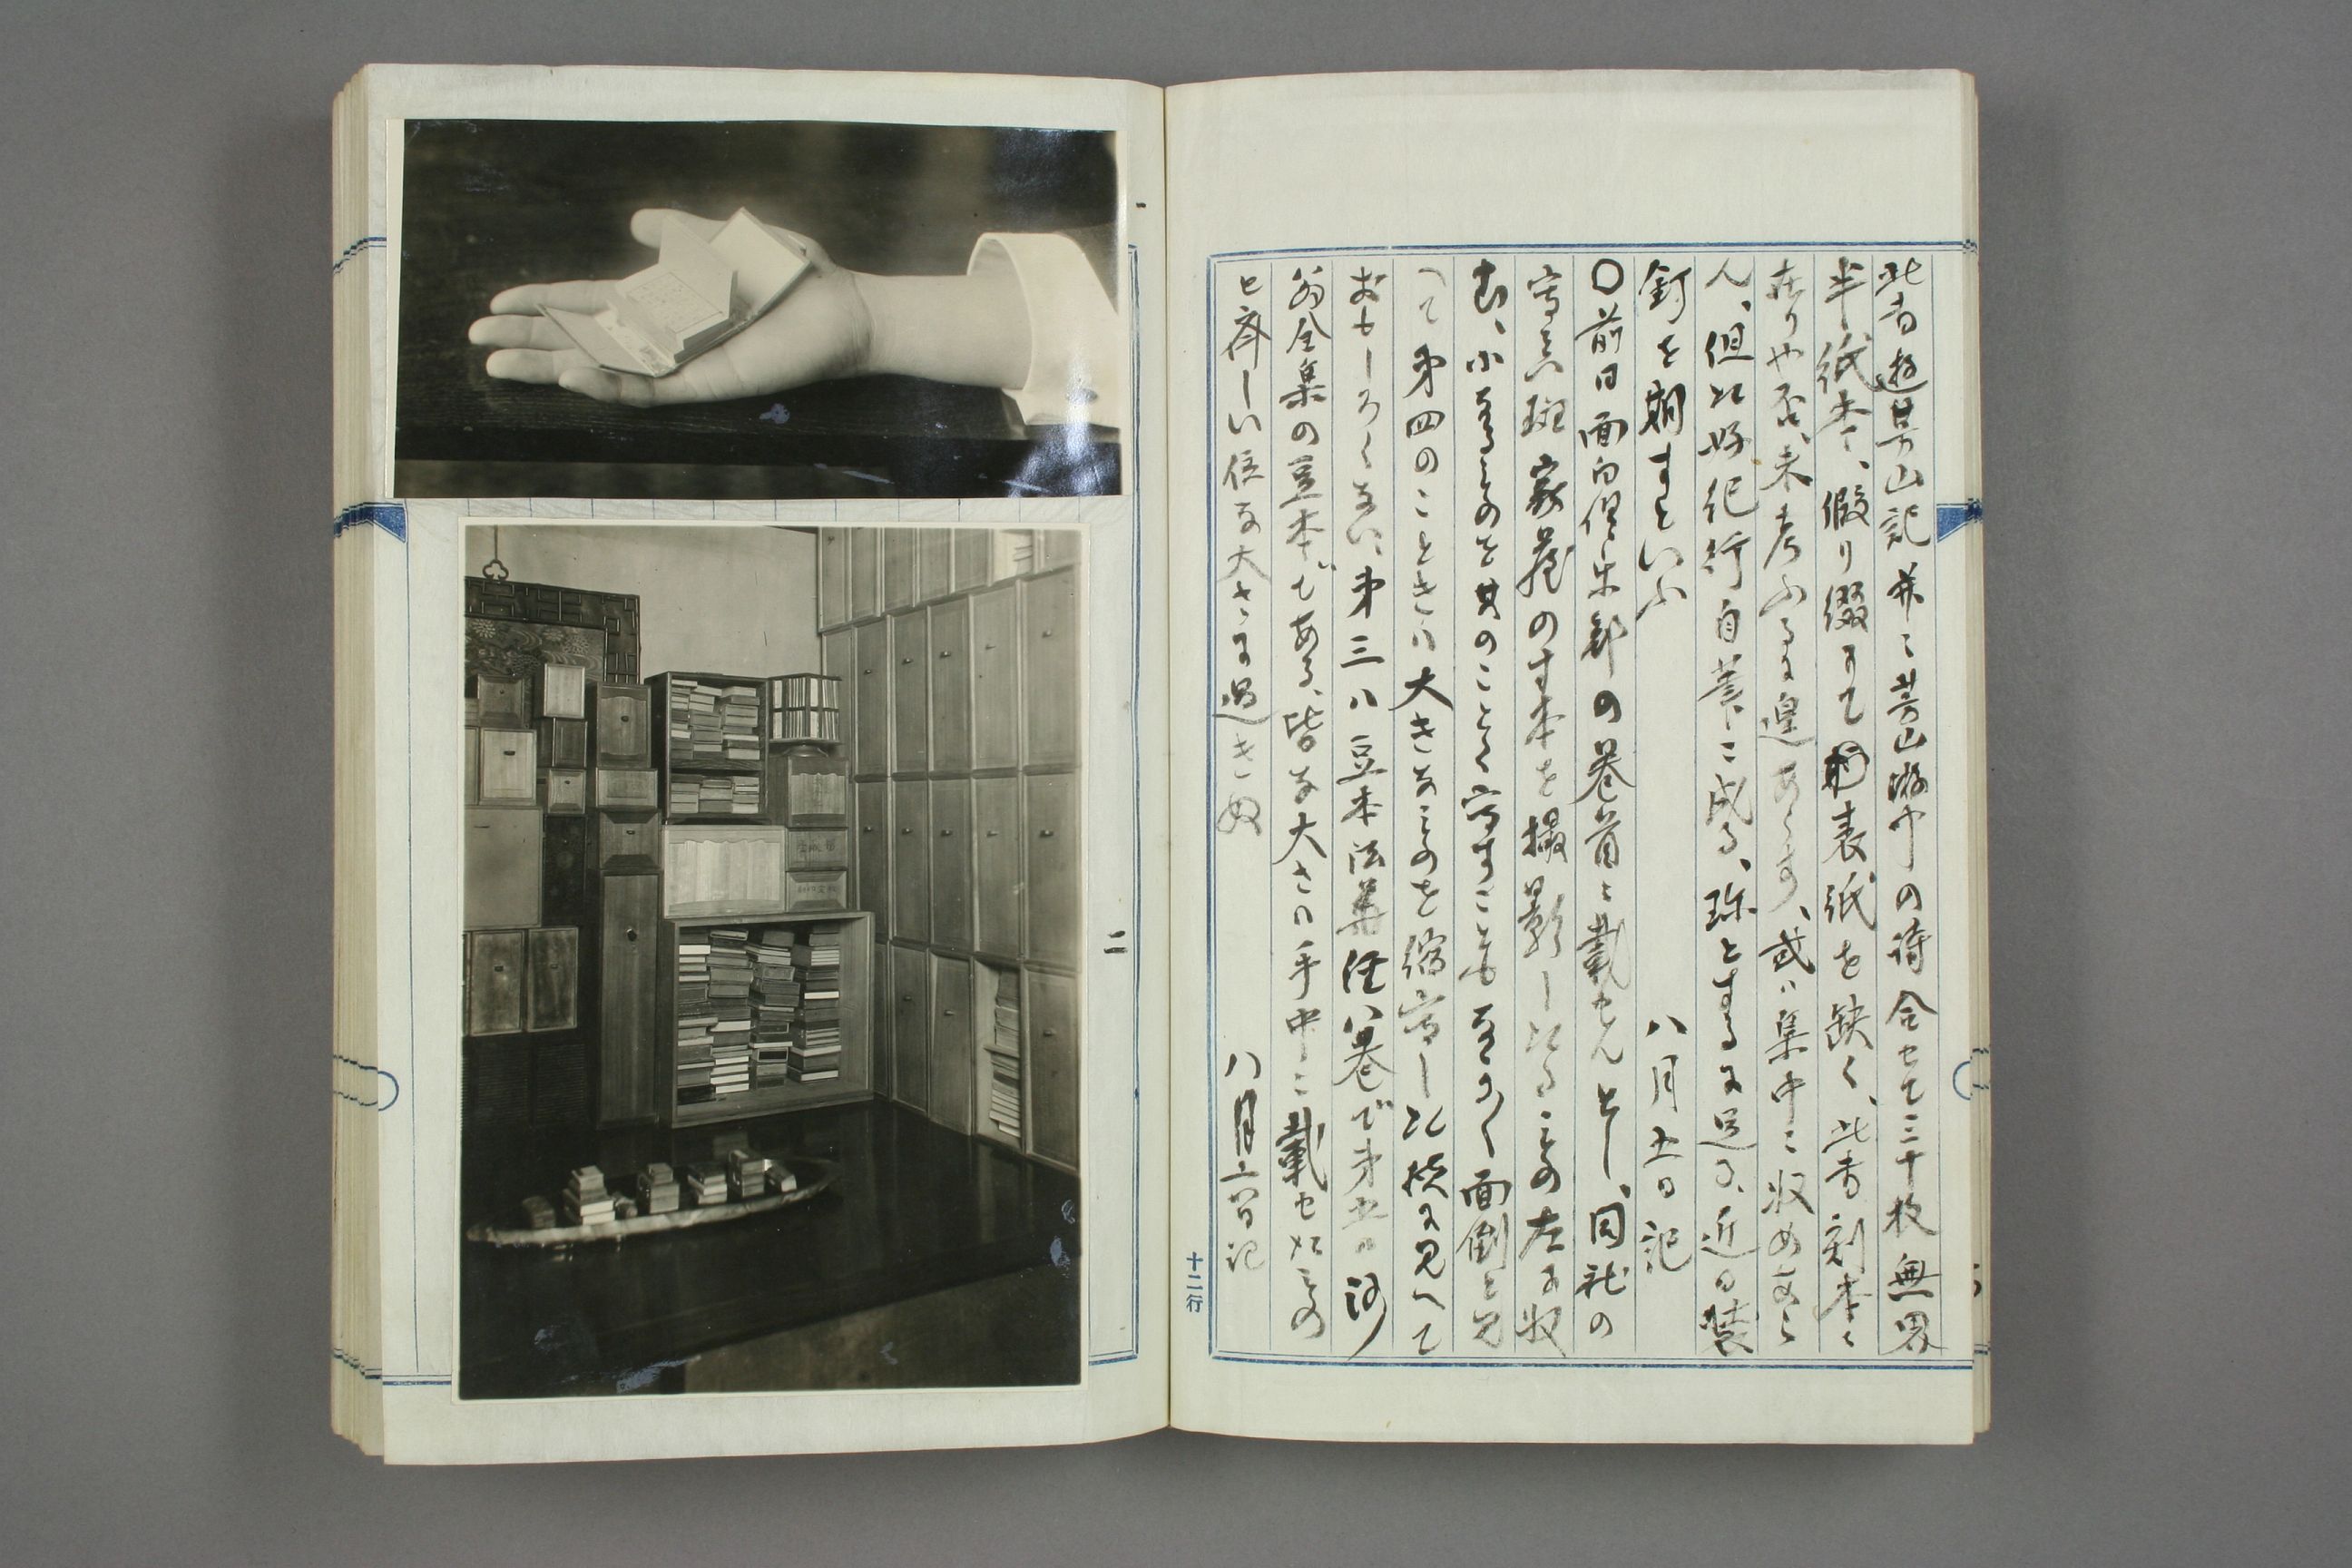 此書遊芳山記并ニ芳山遊中の詩合せて三十枚無界
半紙本、假り綴にて表紙を缺く、此書刻本
在りや否、未考ふるに遑あらず、或ハ集中ニ収めあら
ん、但此好紀行自筆ニ成る、珍とするに足る、近日装
釘を期すといふ
八月五日記
○前日面白倶楽部の巻首ニ載せん とし、同社の
写真班家蔵の寸本を撮影し たるもの左に収
む、小なるものを其のことく写すことも なかく面倒と見
へて第四のこときハ大きなものを縮写し た様に見へて
おもしろくない、第三ハ豆本法華経八巻で第五ハ
翁全集の豆本である、皆な大さハ手中ニ載せたもの
と斉しい位な大さに過きぬ
八月六日記
十二行
一
二